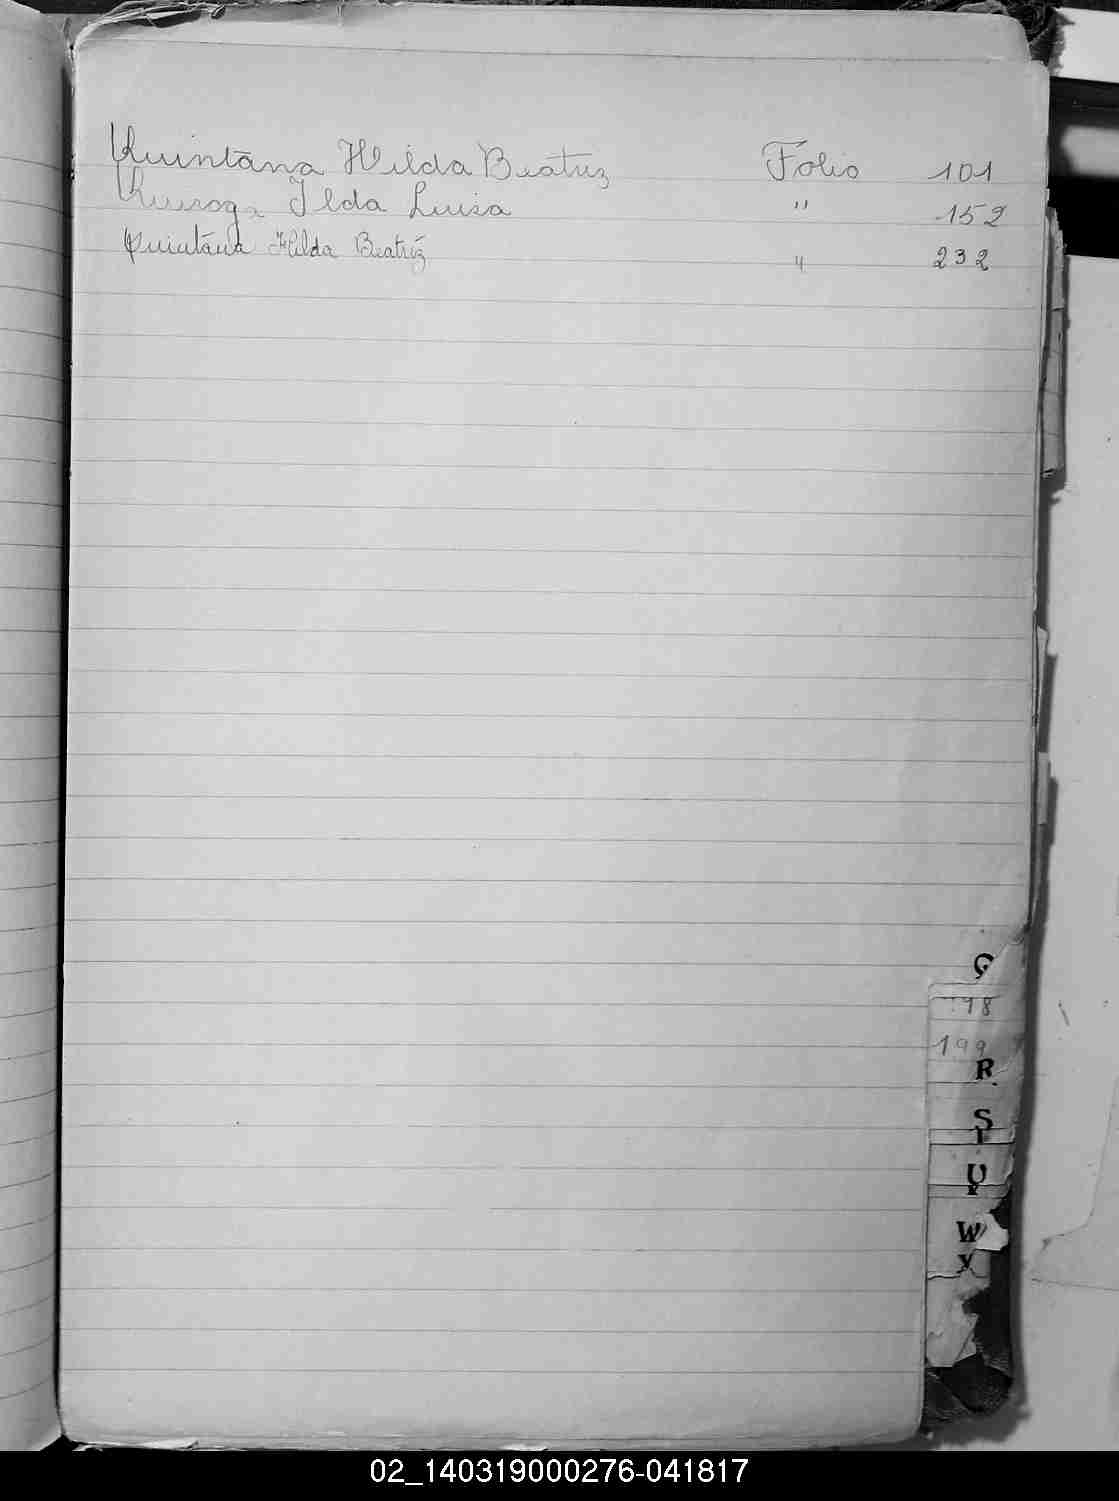 Quintana Hilda Beatriz Folio 101
Quiroga Ilda Luisa " 152
Quintana Hilda Beatríz " 232
Q
98
199
R
S
U
W
X
02_140319000276-041817